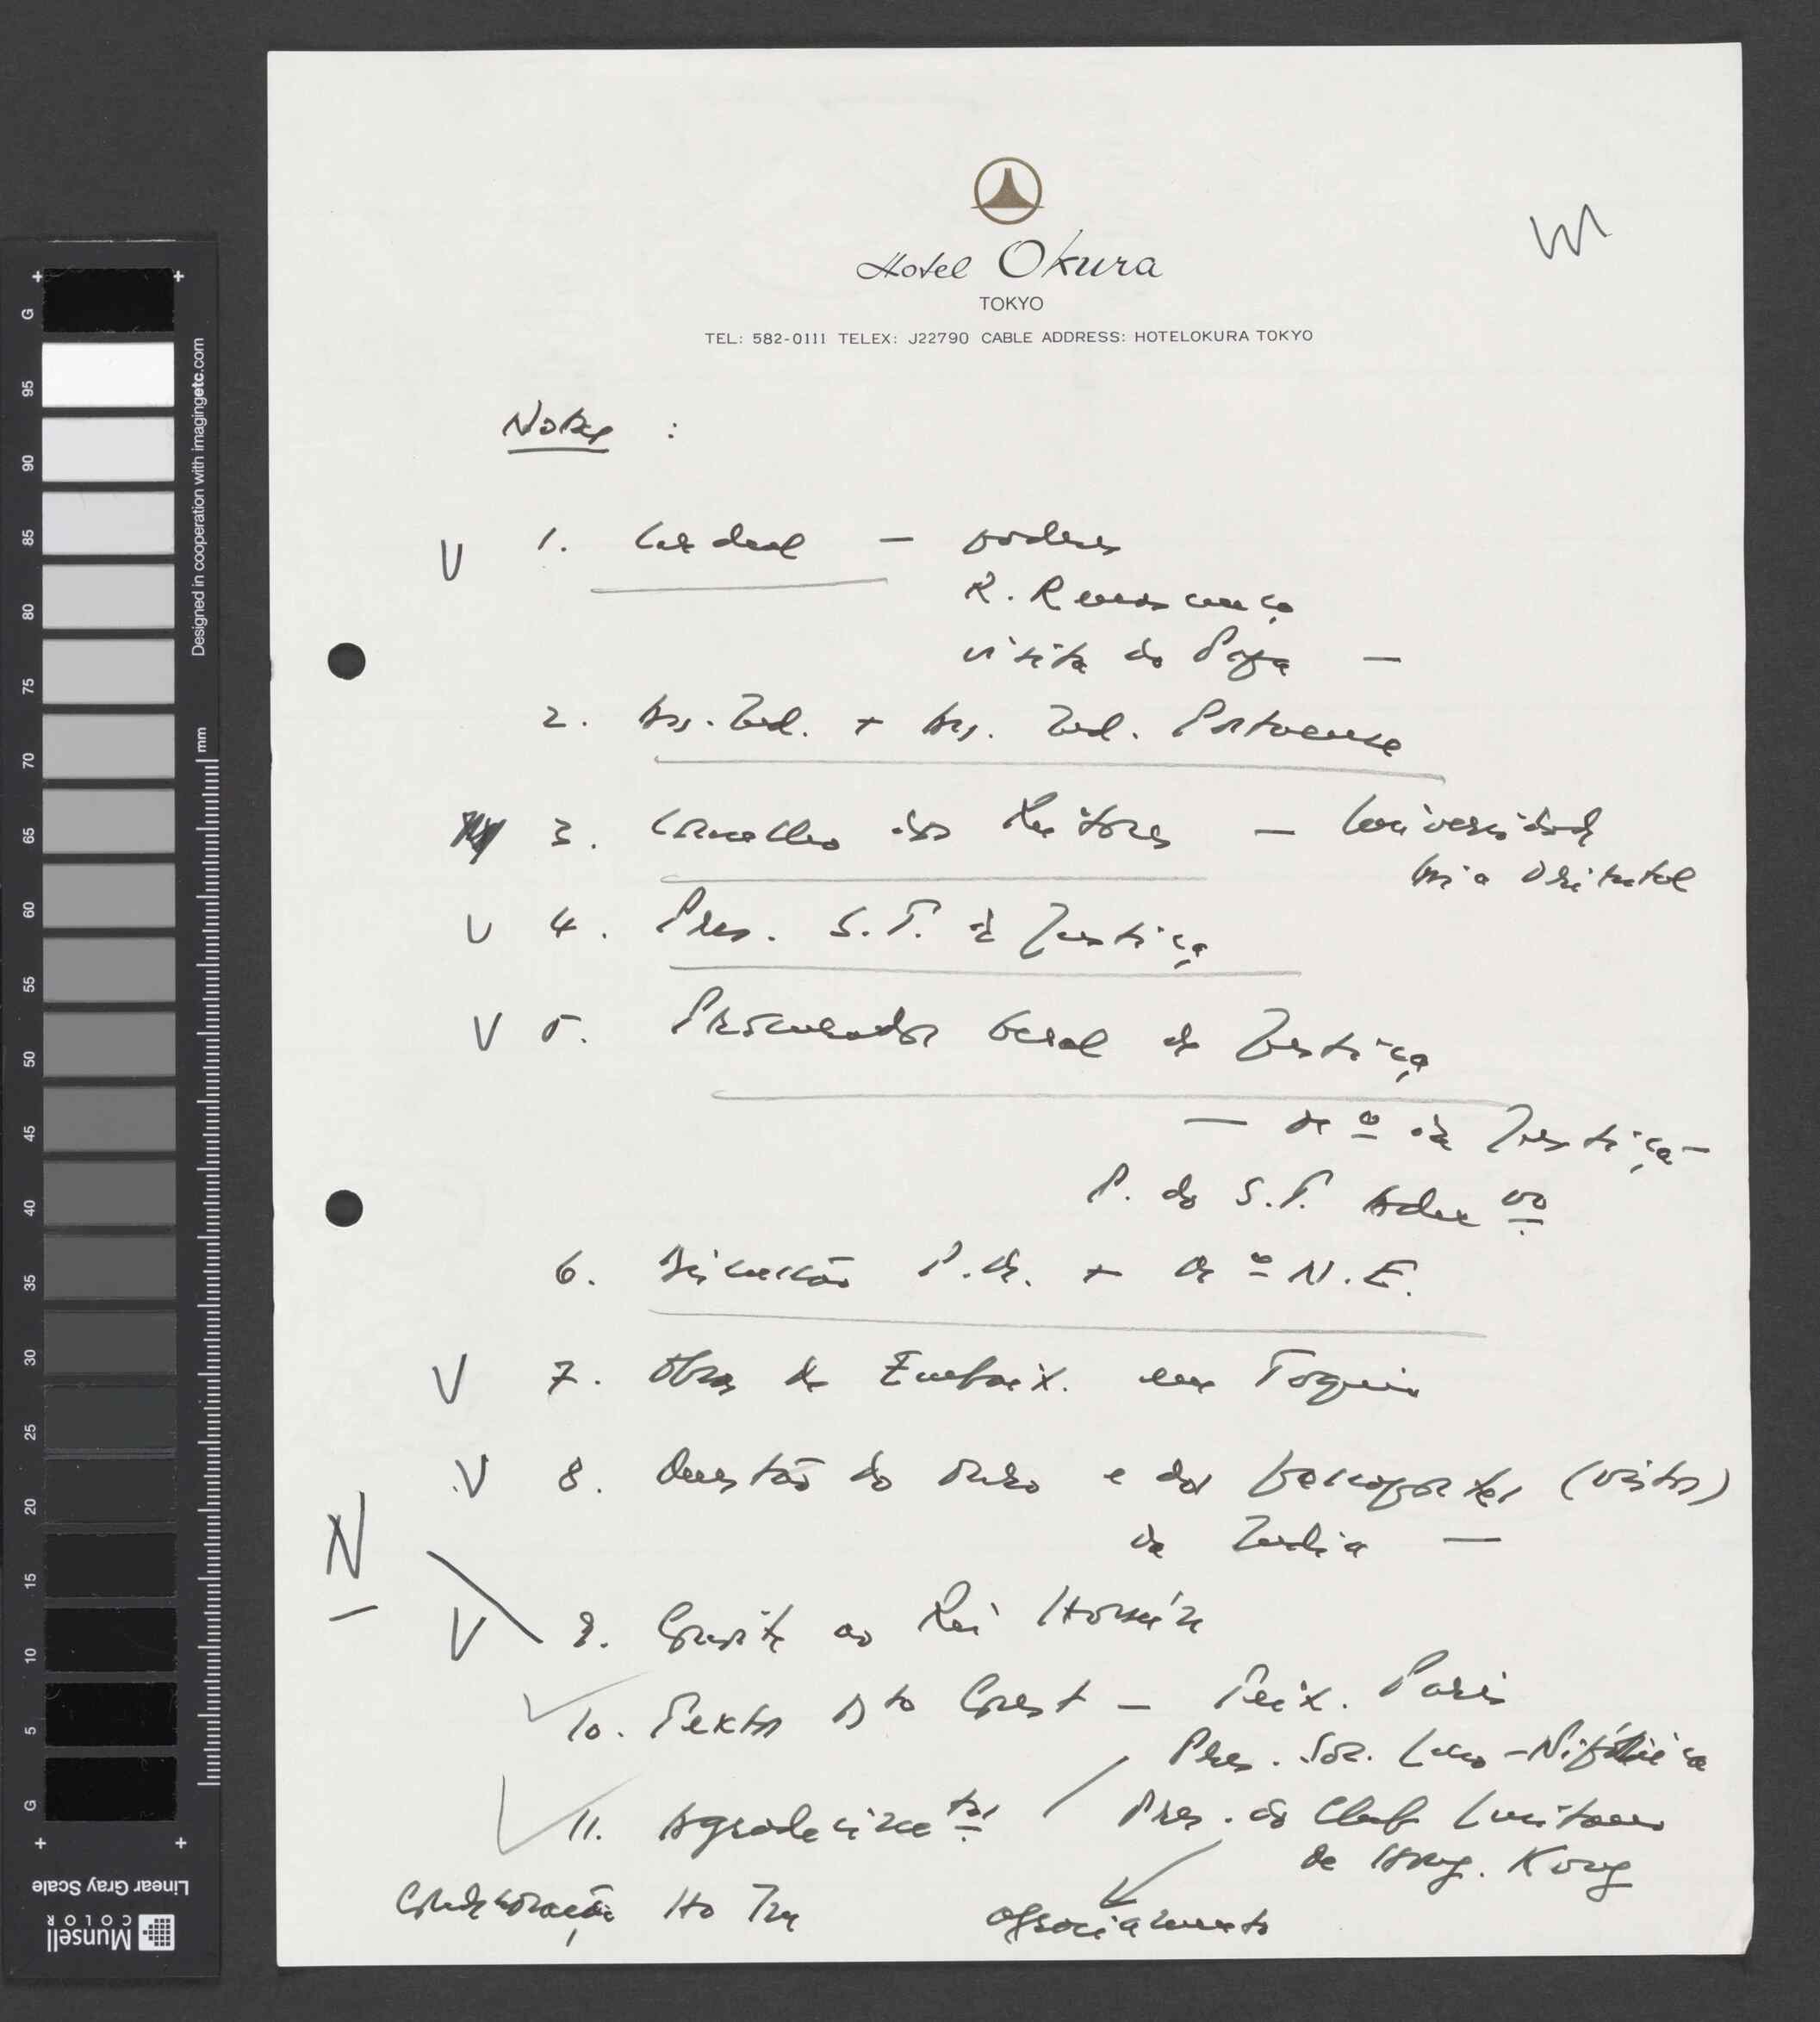 Hotel Okura
TOKYO
TEL: 582-0111 TELEX: J22790 CABLE ADDRESS: HOTELOKURA TOKYO
Notas :
V 1. Cardeal — poderes
R. Renascença
visita do Papa —
2. Ass. Ind. + Ass. Ind. Portuense
3. Conselho dos Reitores — Universidade
Ásia Oriental
V 4. Pres. S.T. de Justiça
V 5. Procurador Geral da Justiça
— Mº da Justiça —
P. do S.T. Admvo
6. P.M. + Mº N.E.
V 7. Obras da Embaix. em Toquio
V 8. Questão do ouro e dos passaportes (vistos)
da India —
N
V 9. Convite ao Rei
10. Textos — Teix. Paris
Pres. Soc. Luso-Nipónica
11. Agradecimentos / Pres. do Club Lusitano
de Hong. Kong
Condecoração Ho Tin
Designed in cooperation with imagingetc.com
mm
G
95
90
85
80
75
70
65
60
55
50
45
40
35
30
25
20
15
10
5
G
Linear Gray Scale
Munsell
COLOR